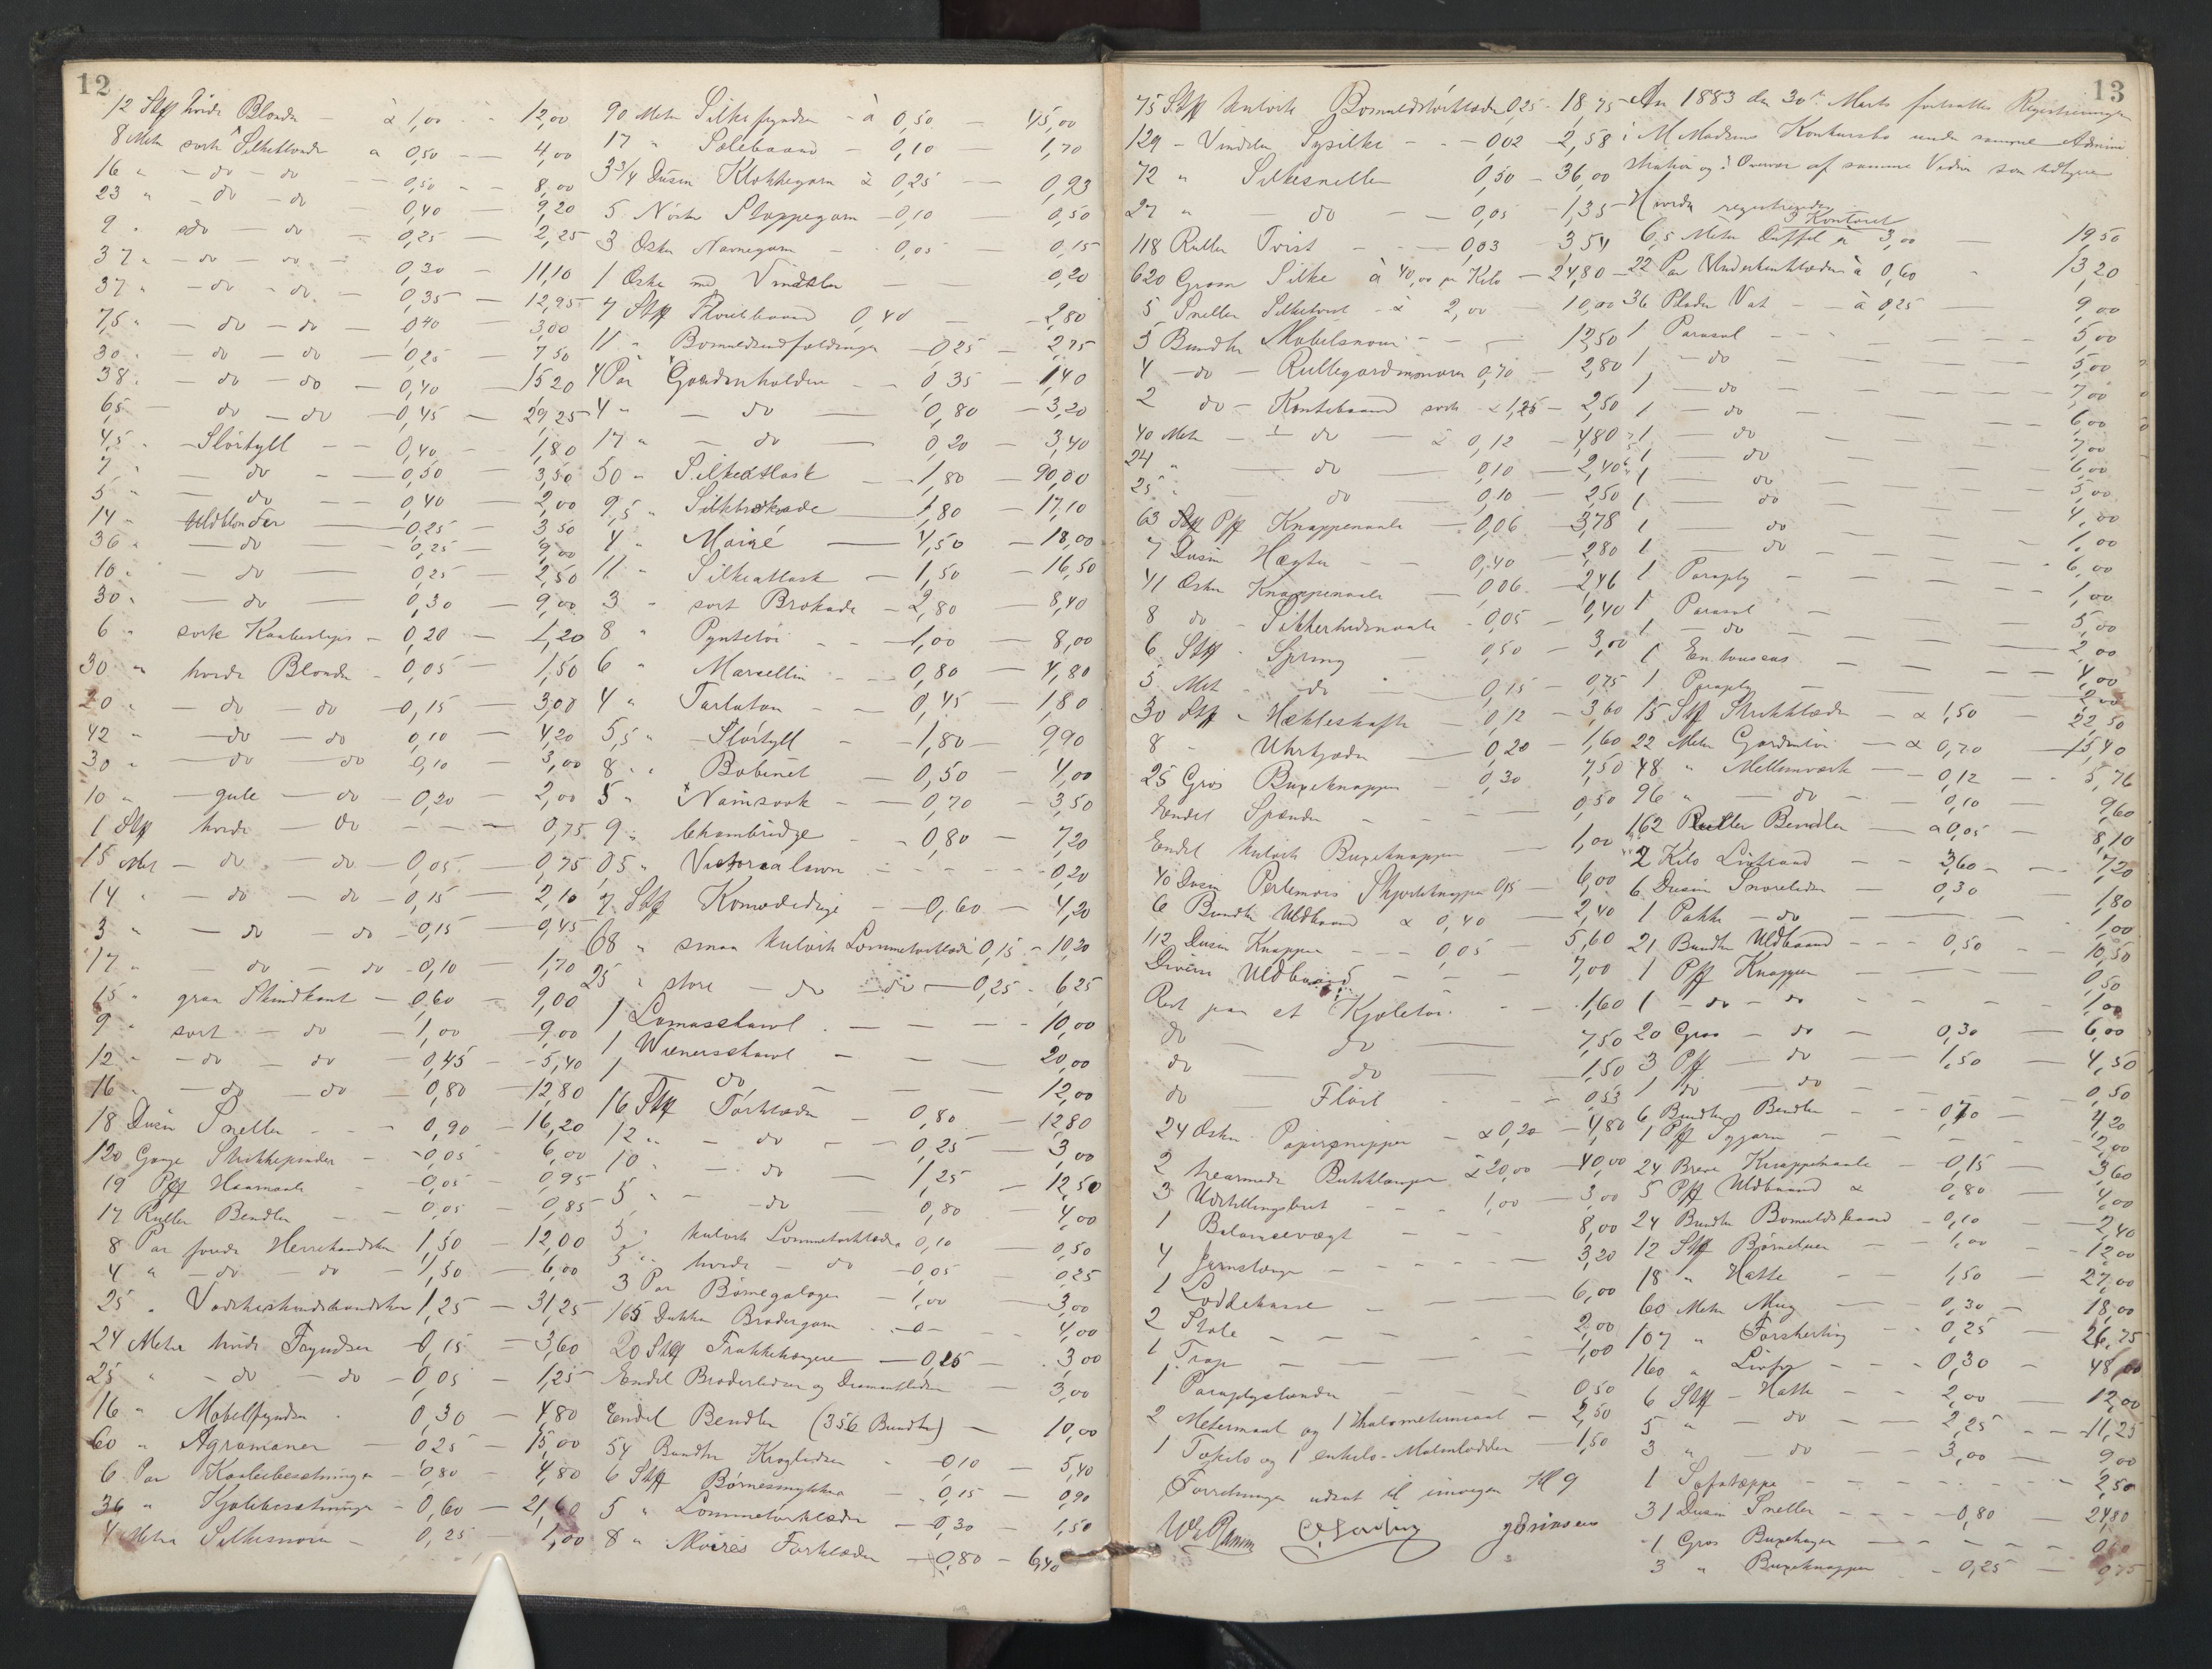 12
12 Stk hvide Blonder - à 1,00 - 12,00
8 Meter sorte Silkeblonder a 0,50 - 4,00
16 " - do - do 0,50 - 8,00
23 " - do - do 0,40 - 9,20
9 " do - do - 0,25 - 2,25
37 " - do - do - 0,30 - 11,10
37 " - do - do - 0,35 - 12,95
7,5 " - do - do - 0,40 - 3,00
30 " - do - do - 0,25 - 7,50
38 " - do - do - 0,40 - 15,20
65 - do - do - 0,45 - 29,25
4,5 " - Slörtyll - 0,40 - 1,80
7 " - do - 0,50 - 3,50
5 " - do 0,40 - 2,00
14 " Uldblonder - 0,25 - 3,50
36 " - do - 0,25 - 9,00
10 " - do - 0,25 - 2,50
30 " - do - 0,30 - 9,00
6 " sorte - 0,20 - 1,20
30 " hvide Blonder - 0,05 - 1,50
20 " - do - do - 0,15 - 3,00
42 " - do - do 0,10 - 4,20
30 " - do - do - 0,10 - 3,00
10 " - gule - do - 0,20 - 2,00
1 Stk hvide - do - 0,75
15 Met - do - do - 0,05 - 0,75
14 " - do - do - 0,15 - 2,10
3 " - do - do - 0,15 - 0,45
17 " - do - do - 0,10 - 1,70
15 " graa Skindkant - 0,60 - 9,00
9 " sort - do - 1,00 - 9,00
12 " - do - do - 0,45 - 5,40
16 " - do - do 0,80 - 12,80
18 Dusin Sneller - 0,90 - 16,20
120 Gange Strikkepinder - 0,05 - 6,00
19 Pk Haarnaale - 0,05 - 0,95
17 Ruller Bendler - 0,05 - 0,85
8 Par forede Herrehandsker 1,50 - 12,00
4 " - do - do - 1,50 - 6,00
25 " Vadskeskindshandsker 1,25 - 31,25
24 Meter hvide Fryndser - 0,15 - 3,60
25 " - do - do - 0,05 - 1,25
16 " Mobelfryndser - 0,30 - 4,80
60 " Agramaner - 0,25 - 15,00
6 Par Kaabebesætninger - 0,80 - 4,80
36 " Kjolebesætninger - 0,60 - 21,60
4 Meter Silkesnore - 0,25 - 1,00
90 Meter Silkefryndser - à 0,50 - 45,00
17 " Solebaand - 0,10 - 1,70
3 3/4 Dusin Klokkegarn à 0,25 - 0,93
5 Nöster Stoppegarn - 0,10 - 0,50
3 Esker Navnegarn - 0,05 - 0,15
1 Eske med Vindsler - 0,20
7 Stk Flöielbaand 0,40 - 2,80
11 " - 0,25 - 2,75
4 Par Gardinholdere - 0,35 - 1,40
4 " - do - 0,80 - 3,20
17 " - do - 0,20 - 3,40
50 " Silkeatlask - 1,80 - 90,00
9,5 " Silkebrokade - 1,80 - 17,10
4 " Moiré - 4,50 - 18,00
11 " Silkeatlask - 1,50 - 16,50
3 " sort Brokade - 2,80 - 8,40
8 " Pyntetöi - 1,00 - 8,00
6 " Marcellin - 0,80 - 4,80
4 " Tarlatan - 0,45 - 1,80
5,5 " - Slörtyll - 1,80 - 9,90
8 " Bobinet - 0,50 - 4,00
5 " Nainsook - 0,70 - 3,50
9 " Chambridge - 0,80 - 7,20
0,5 " Victoria lawn - 0,20
7 Stk - 0,60 - 4,20
68 " smaa kulörte Lommetörklæder 0,15 - 10,20
25 " store - do - do - 0,25 - 6,25
1 Lamaschawl - 10,00
1 Wienerschawl - 20,00
1 do - 12,00
16 Stk Törklæder - 0,80 - 12,80
12 " - do - 0,25 - 3,00
10 " - do - 1,25 - 12,50
5 " - do - 0,80 - 4,00
5 " kulörte Lommetörklæder 0,10 - 0,50
5 " hvide - do - 0,05 - 0,25
3 Par Börnegaloger - 1,00 - 3,00
165 Dukker Brodergarn - 4,00
20 Stk Frakkehængere - 0,15 - 3,00
Endel Broderlidser og Diamantlidser - 3,00
Endel Bendler (356 Bundter) - 10,00
54 Bundter Kroglidser - 0,10 - 5,40
6 Stk Börnesmykker - 0,15 - 0,90
5 " Lommetörklæder - 0,30 - 1,50
8 " Moirés Forklæder - 0,80 - 6,40
13
75 Stk kulörte Bomuldstörklæder 0,25 - 18,75
129 - Vindsler Sysilke - 0,02 - 2,58
72 " Silkesneller 0,50 - 36,00
27 " - do - 0,05 - 1,35
118 Ruller Tvist - 0,03 - 3,54
620 Gram Silke à 40,00 pr Kilo - 24,80
5 Sneller Silketvist - à 2,00 - 10,00
5 Bundter Mobelsnore - 12,50
4 - do - Rullegardinsnore 0,70 - 2,80
2 do - Kantebaand sort à 1,25 - 2,50
40 Meter - do - à 0,12 - 4,80
24 " do 0,10 - 2,40
25 " do 0,10 - 2,50
63 Pk Knappenaale - 0,06 - 3,78
7 Dusin Hægter - 0,40 - 2,80
41 Esker Knappenaale - 0,06 - 2,46
8 do - Sikkerhedsnaale - 0,05 - 0,40
6 Stk - Spring - 0,50 - 3,00
5 Met - do - 0,15 - 0,75
30 Stk - Hekleskafter - 0,12 - 3,60
8 - Uhrfjedre - 0,20 - 1,60
25 Gros Buxeknapper - 0,30 7,50
Endel Spænder - 0,50
Endel kulörte Buxeknapper - 1,00
40 Dusin Perlemors Skjorteknapper 0,15 - 6,00
6 Bundter Uldbaand à 0,40 - 2,40
112 Dusin Knapper - 0,05 - 5,60
Diverse Uldbaand - 7,00
Rest paa et Kjoletöi - 1,60
do do - 7,50
do - do - 1,50
do Flöiel - 0,53
24 Esker Papirsnipper - à 0,20 - 4,80
2 trearmede Butiklamper à 20,00 - 40,00
3 Udstillingsbret - 1,00 - 3,00
1 Balancevægt - 8,00
4 Jernstænger - 3,20
1 Loddekasse - 6,00
2 Stole - 2,00
1 Trap - 1,00
1 Paraplystander - 0,50
2 Metermaal og 1 - 2,50
1 Tokilo og 1 enkilo-Malmlodder - 1,50
Forretningen udsat til imorgen Kl 9
An 1883 den 30te Marts fortsattes Registreringen
i M Madsens Konkursbo under samme Admini
stration og i Overvær af samme Vidner som tidligere
Hvorda registreredes
I Kontoret
6,5 Meter Duffel à 3,00 19,50
22 Par Underbenklæder à 0,60 13,20
36 Plader Vat - à 0,25 - 9,00
1 Parasol - 5,00
1 - do - 5,00
1 - do - 7,00
1 - do - 6,00
1 - do - 7,00
1 - do - 6,00
1 - do - 5,00
1 - do - 4,00
1 - do - 1,00
1 - do - 6,00
1 Paraply - 1,00
1 Parasol - 5,00
1 - do - 2,00
1 En toutcas - 4,00
1 Paraply - 2,00
15 Stk Strikklæder - à 1,50 - 22,50
22 Meter Gardintöi - à 0,70 - 15,40
48 " Mellemværk - 0,12 - 5,76
96 " - do - 0,10 - 9,60
162 Ruller Bendler - à 0,05 - 8,10
2 Kilo Livbaand - 3,60 - 7,20
6 Dusin Snorelidser - 0,30 1,80
1 Pakke - do - 1,00
21 Bundter Uldbaand - 0,50 - 10,50
1 Pk Knapper - 0,50
1 - do - do - 1,00
20 Gros - do - 0,30 - 6,00
3 Pk - do - 1,50 - 4,50
1 do - do - 0,50
6 Bundter Bendler - 0,70 4,20
1 Pk Sygarn - 2,00
24 Breve Knappenaale - 0,15 - 3,60
5 Pk Uldbaand à 0,80 - 4,00
24 Bundter Bomuldsbaand - 0,10 - 2,40
12 Stk Börnehuer - 1,00 - 12,00
18 " Hatte - 1,50 - 27,00
60 Meter Mug - 0,30 - 18,00
107 " Forsherting - 0,25 - 26,75
160 " - 0,30 - 48,00
6 Stk - Hatte - 2,00 12,00
5 " - do - 2,25 - 11,25
3 " - do - 3,00 - 9,00
1 Sofatæppe - 2,50
31 Dusin Sneller - 0,80 - 24,80
1 Gros Buxehager - 0,60
3 " Buxeknapper - 0,25 - 0,75